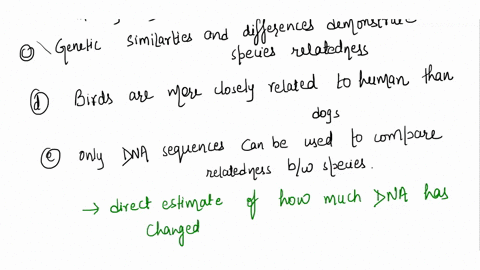 Ⓒ Genetic similarties and differences demonstrate
species relatedness
ⓓ Birds are more closely related to human than
dogs
ⓔ only DNA sequences can be used to compare
relatedness b/w species.
→ direct estimate of how much DNA has
changed